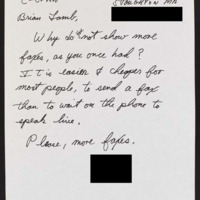 C-SPAN
STOUGHTON MA
Brian Lamb,
Why do not show more
faxes, as you once had?
It is easier & cheaper for
most people, to send a fax
than to wait on the phone to
speak live.
Please, more faxes.